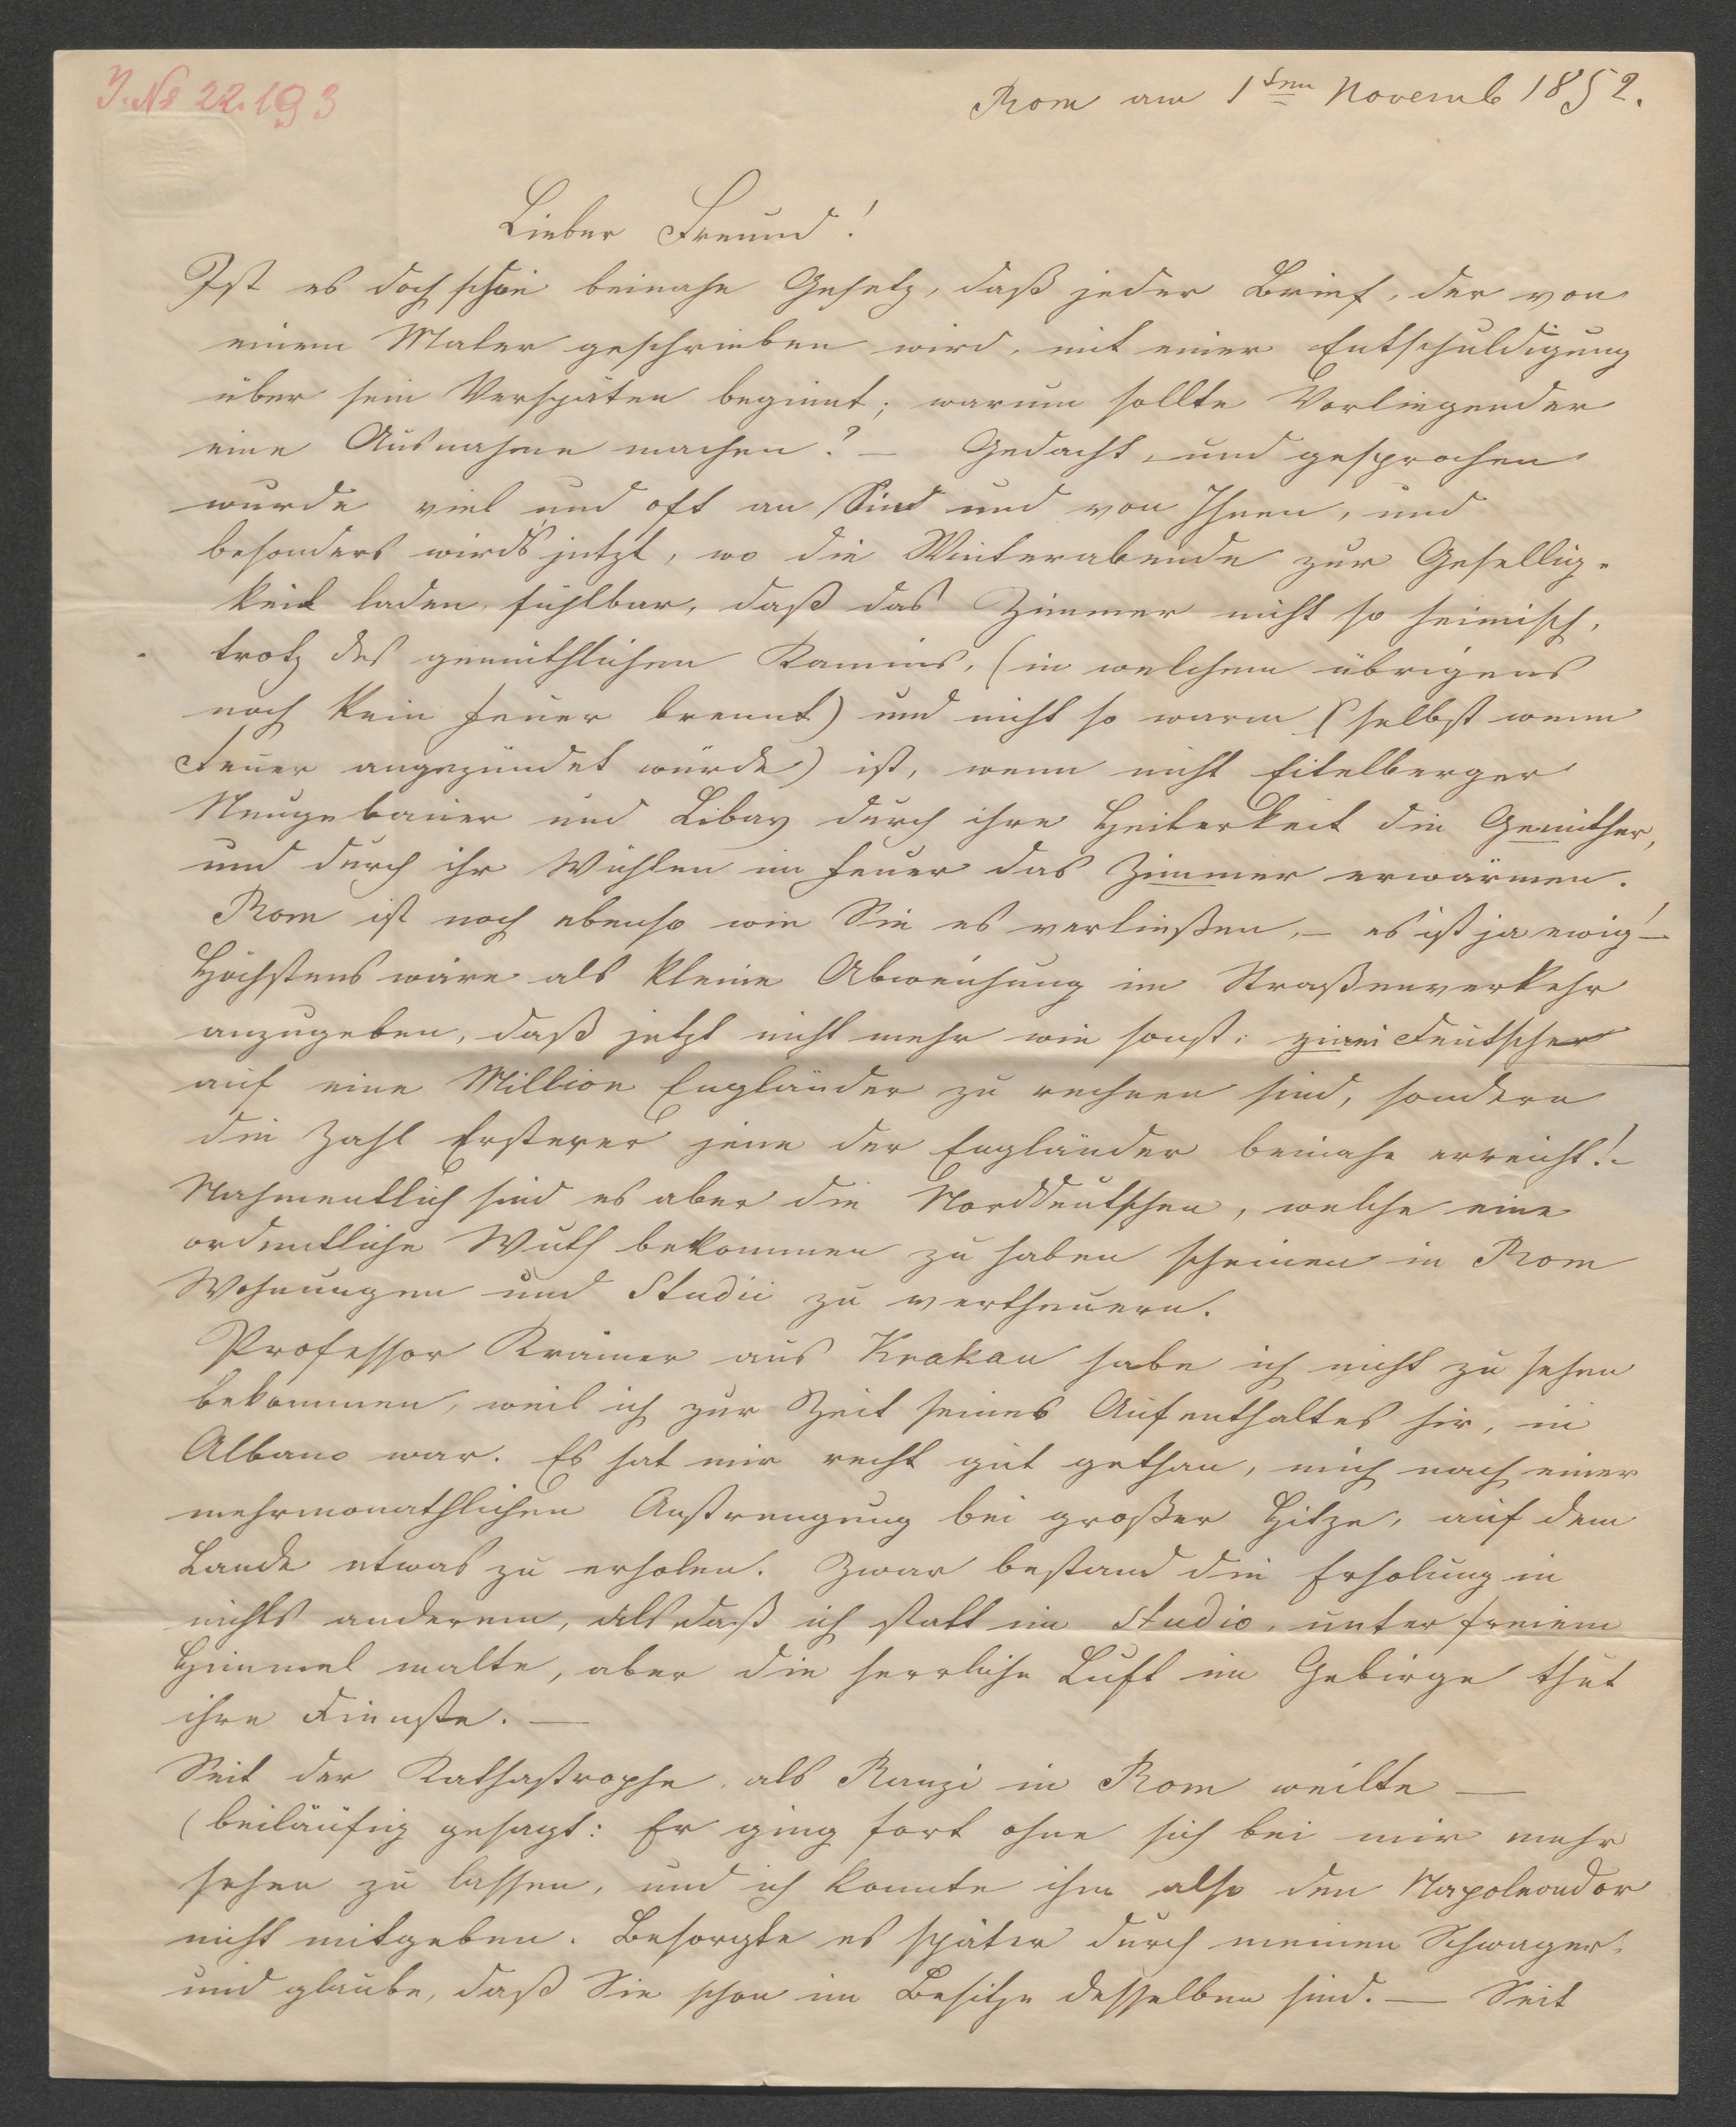 J. № 22.193
Rom am 1ten Novemb 1852.
Lieber Freund!
Ist es doch schon beinahe Gesetz, daß jeder Brief, der von
einem Maler geschrieben wird, mit einer Entschuldigung
über sein Verspäten beginnt; warum sollte Vorliegender
eine Ausnahme machen? – Gedacht, und gesprochen
wurde viel und oft an Sie und von Ihnen, und
besonders wird's jetzt, wo die Winterabende zur Gesellig-
keit laden, fühlbar, daß das Zimmer nicht so heimisch,
trotz des gemüthlichen Kamins, (in welchem übrigens
noch kein Feuer brennt) und nicht so warm (selbst wenn
Feuer angezündet würde) ist, wenn nicht Eitelberger
Neugebauer und Libay durch ihre Heiterkeit die Gemüther,
und durch ihr Wühlen im Feuer das Zimmer erwärmen.
Rom ist noch ebenso wie Sie es verließen, – es ist ja ewig! –
Höchstens wäre als kleine Abweichung im Straßenverkehr
anzugeben, daß jetzt nicht mehr wie sonst: zwei Deutsche
auf eine Million Engländer zu rechnen sind, sondern
die Zahl Ersterer jene der Engländer beinahe erreicht! –
Nahmentlich sind es aber die Norddeutschen, welche eine
ordentliche Wuth bekommen zu haben scheinen in Rom
Wohnungen und Studii zu vertheuern.
Professor Kramer aus Krakau habe ich nicht zu sehen
bekommen, weil ich zur Zeit seines Aufenthaltes hir, in
Albano war. Es hat mir recht gut gethan, mich nach einer
mehrmonathlichen Anstrengung bei großer Hitze, auf dem
Lande etwas zu erholen. Zwar bestand die Erholung in
nichts anderem, als daß ich statt im Studio, unter freiem
Himmel malte, aber die herrliche Luft im Gebirge thut
ihre Dienste. –
Seit der Kathastrophe, als Ranzi in Rom weilte –
(beiläufig gesagt: Er ging fort ohne sich bei mir mehr
sehen zu lassen, und ich konnte ihm also den Napoleondor
nicht mitgeben. Besorgte es später durch meinen Schwager,
und glaube, daß Sie schon im Besitze desselben sind. – Seit